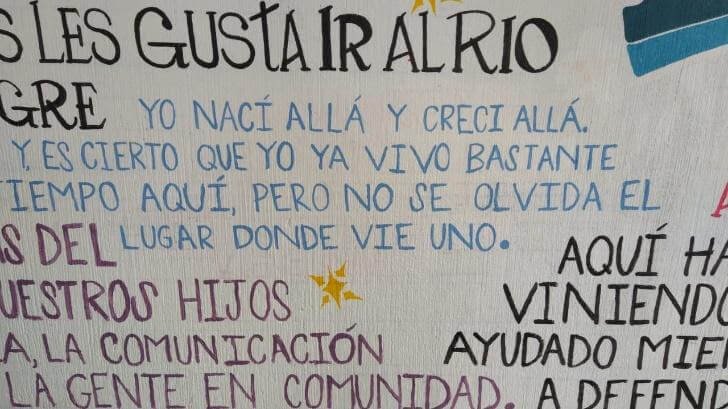 S LES GUSTA IR AL RIO
GRE
YO NACÍ ALLÁ Y CRECI ALLÁ.
Y, ES CIERTO QUE YO YA VIVO BASTANTE
TIEMPO AQUÍ, PERO NO SE OLVIDA EL
LUGAR DONDE VIE UNO.
S DEL
UESTROS HIJOS
A, LA COMUNICACIÓN
LA GENTE EN COMUNIDAD.
AQUÍ HA
VINIENDO
AYUDADO MIE
A DEFEND